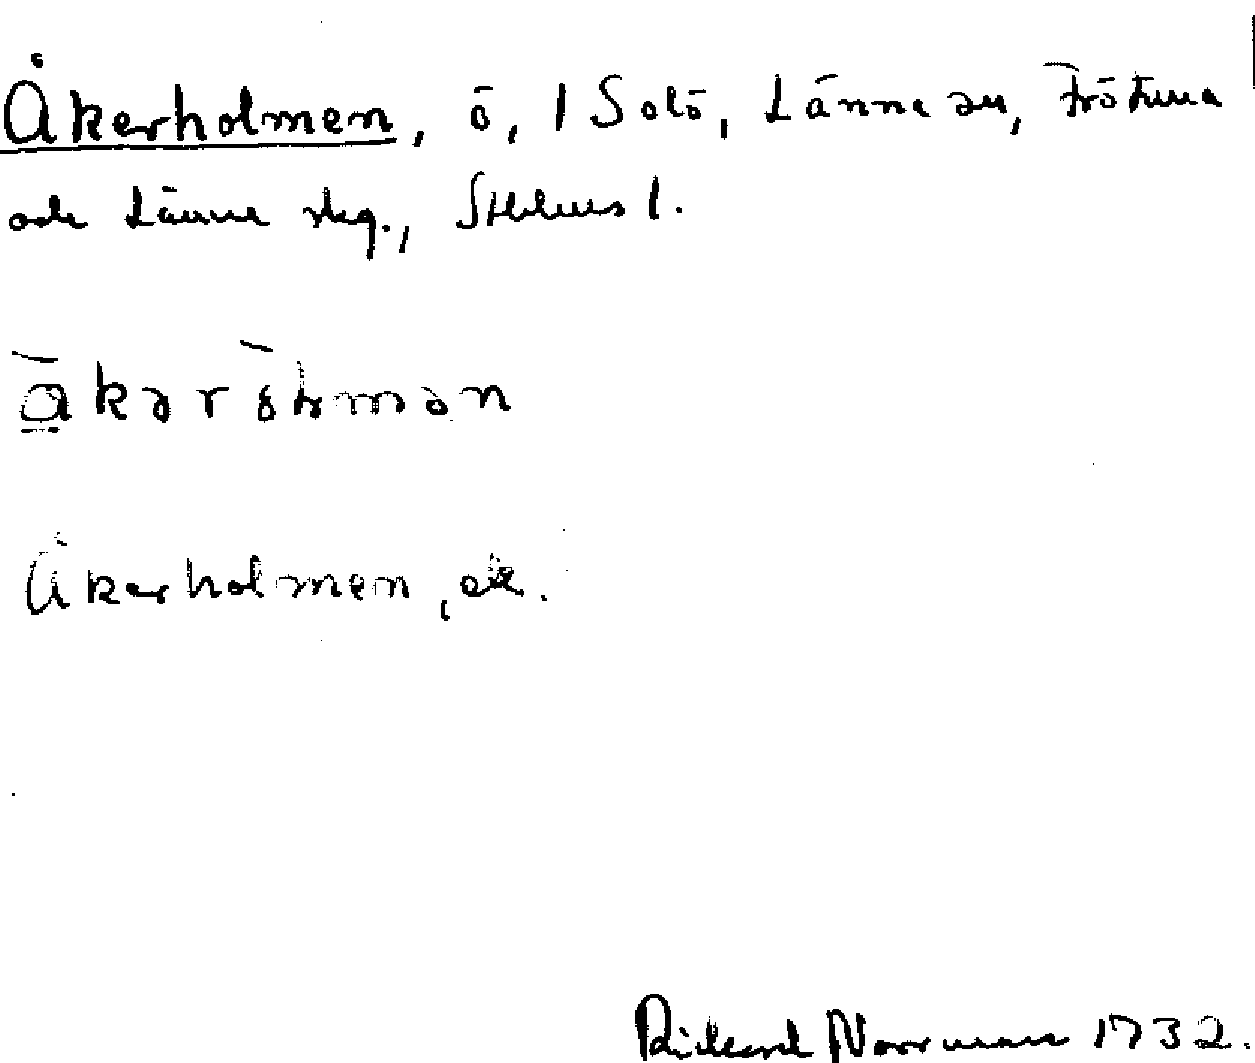 Åkerholmen, ö, 1 Solö, Länna sn, Frötuna
och Länna skg., Sthlms l.
åkərôhmən
Åkerholmen, ek.
Rickard Norrman 1932.